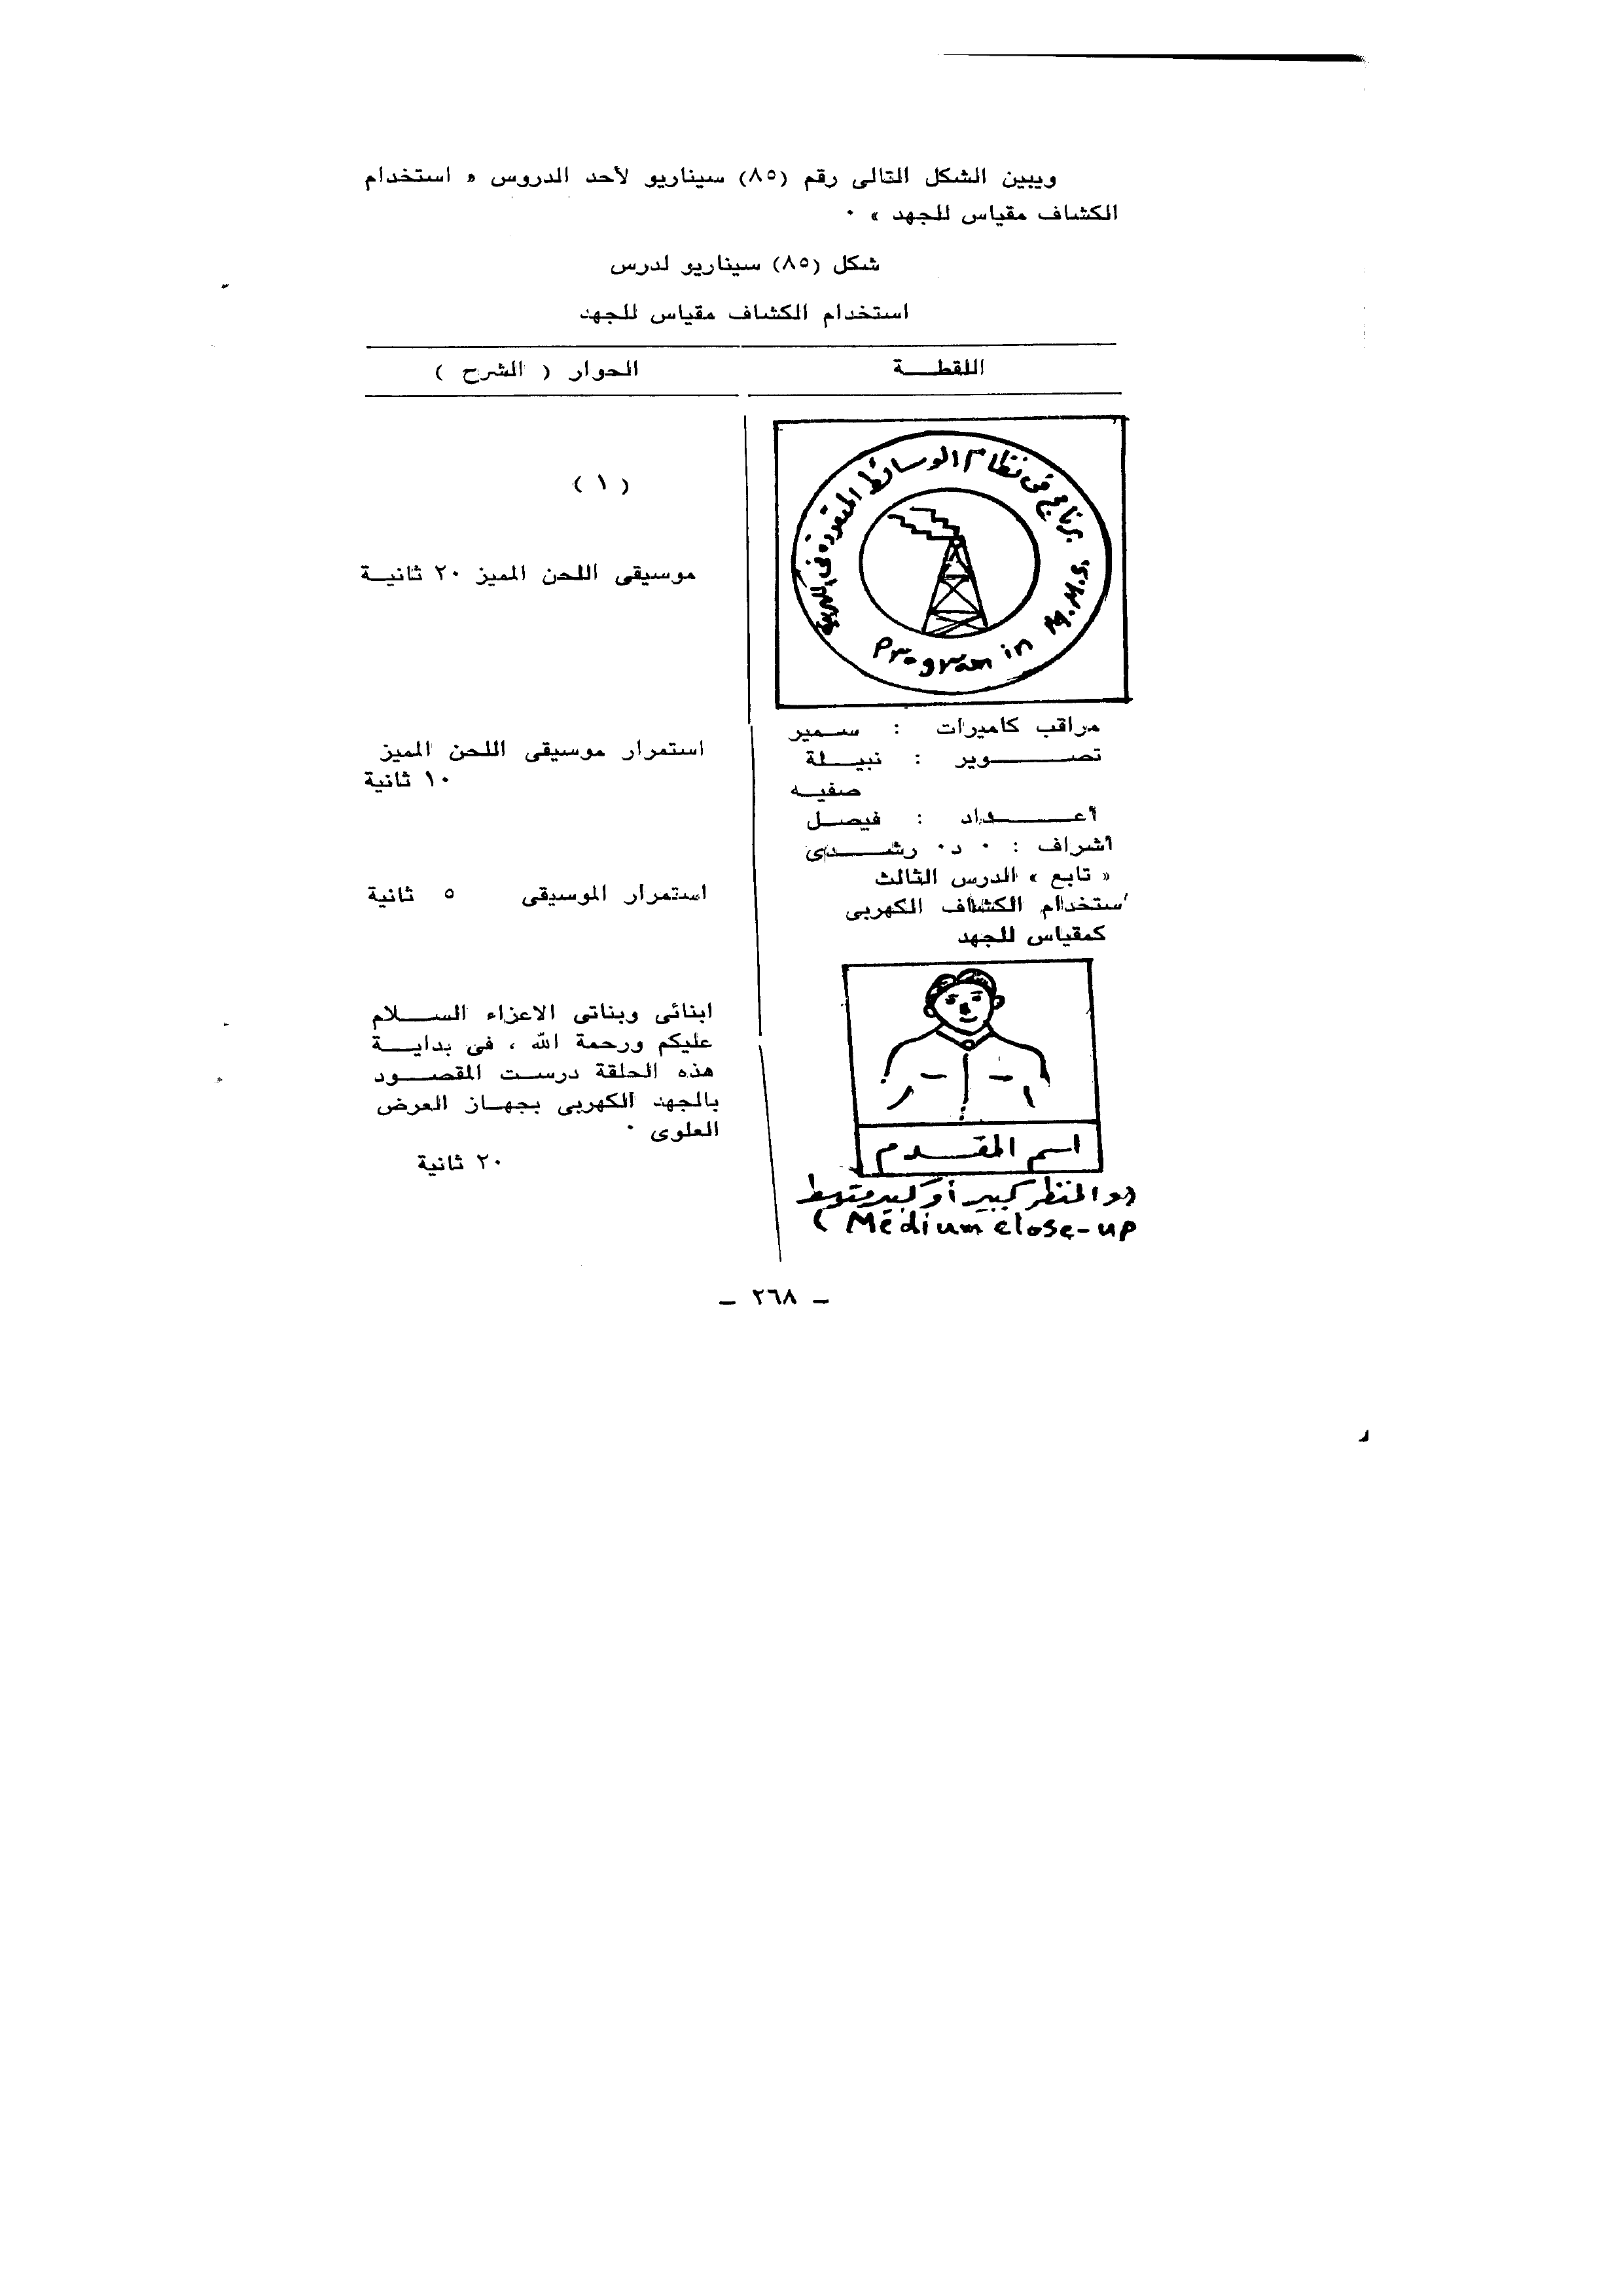 ويبين الشكل التالى رقم (٨٥) سيناريو لأحد الدروس « استخدام
الكشاف مقياس للجهد » ٠
شكل (٨٥) سيناريو لدرس
استخدام الكشاف مقياس للجهد
اللقطـــة
الحوار ( الشرح )
برنامج فى نظام الوسائط المتعدده فى
Program in M.M.S.
( ١ )
موسيقى اللحن المميز ٢٠ ثانيــة
مراقب كاميرات : ســمير
تصـــــــــوير : نبيـــلة
صفيــه
أعـــــــــداد : فيصــل
أشراف : ٠ د٠ رشـــــدى
استمرار موسيقى اللحن المميز
١٠ ثانية
« تابع » الدرس الثالث
استخدام الكشاف الكهربى
كمقياس للجهد
استمرار الموسيقى ٥ ثانية
اسم المقـــدم
(والمنظر كبير أو كبير متوسط
Medium close-up )
ابنائى وبناتى الاعزاء الســـلام
عليكم ورحمة الله ، فى بدايـــة
هذه الحلقة درســت المقصــود
بالجهد الكهربى بجهــاز العرض
العلوى ٠
٢٠ ثانية
ـ ٢٦٨ ـ